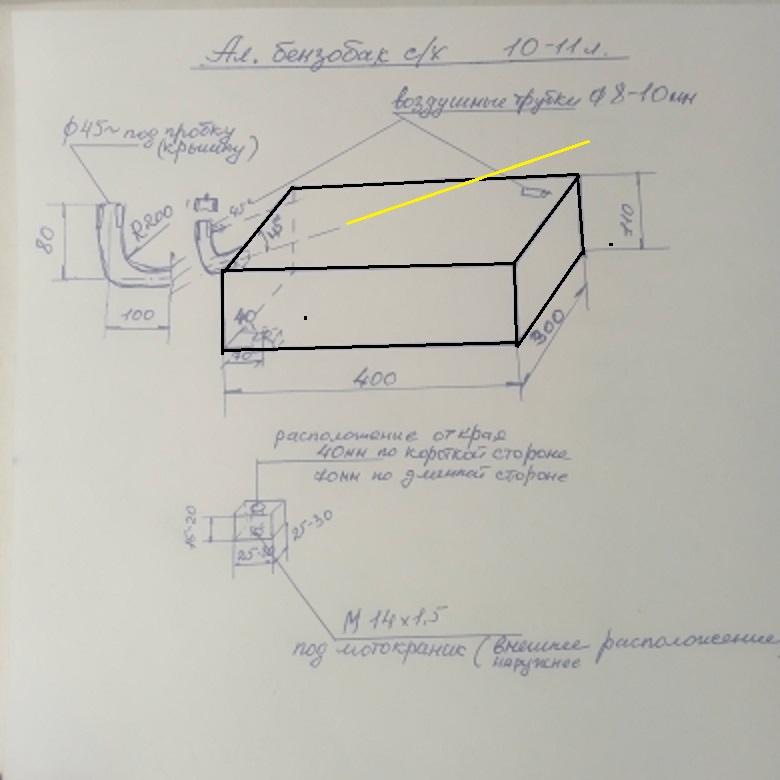 Ал. бензобак с/х 10-11л.
воздушные трубки ф 8-10мм
ф45~ под пробку
(крышку)
80
R200
45°
45°
110
100
40
70
300
400
расположение от края
40мм по короткой стороне
70мм по длинной стороне
15-20
25-30
25-30
М 14х1,5
под мотокраник (внешнее расположение
наружное